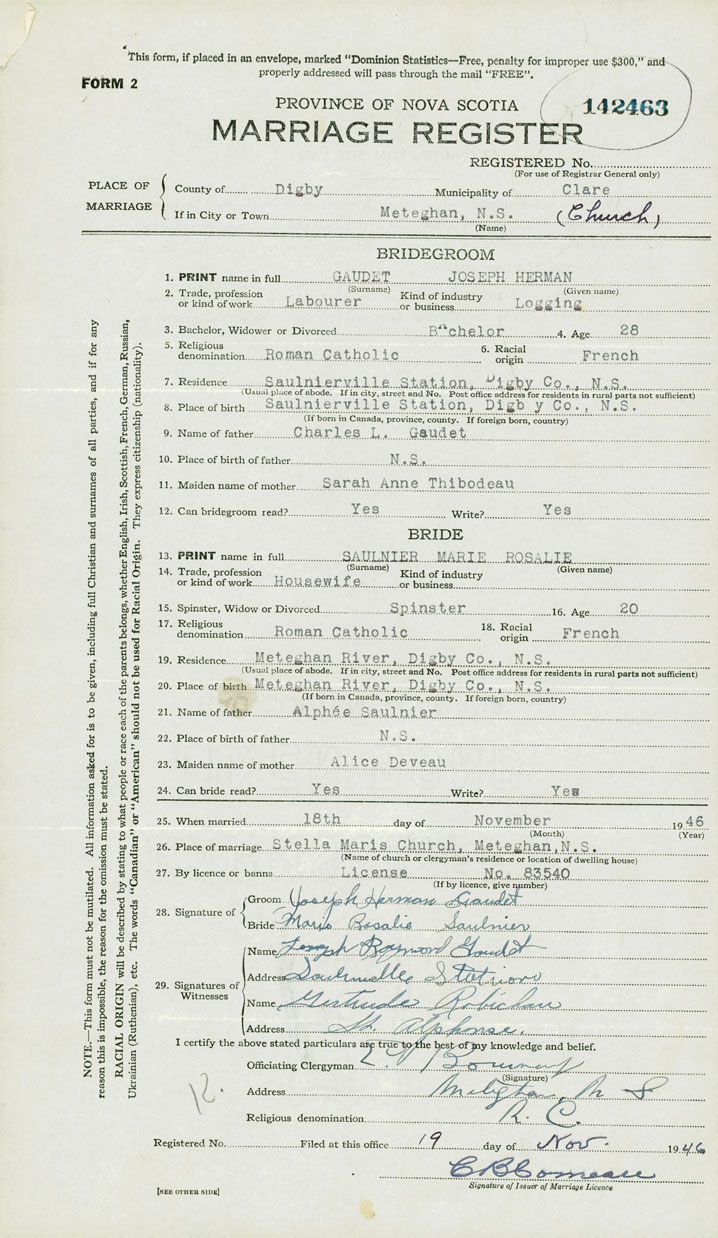 This form, if placed in an envelope, marked "Dominion Statistics—Free, penalty for improper use $300," and
properly addressed will pass through the mail "FREE".
FORM 2
PROVINCE OF NOVA SCOTIA
142463
MARRIAGE REGISTER
REGISTERED No.
(For use of Registrar General only)
PLACE OF MARRIAGE
County of Digby Municipality of Clare
If in City or Town Meteghan, N.S. (Church)
(Name)
BRIDEGROOM
1. PRINT name in full GAUDET JOSEPH HERMAN
(Surname) (Given name)
2. Trade, profession or kind of work Labourer Kind of industry or business Logging
3. Bachelor, Widower or Divorced Bachelor 4. Age 28
5. Religious denomination Roman Catholic 6. Racial origin French
7. Residence Saulnierville Station, Digby Co., N.S.
(Usual place of abode. If in city, street and No. Post office address for residents in rural parts not sufficient)
8. Place of birth Saulnierville Station, Digb y Co., N.S.
(If born in Canada, province, county. If foreign born, country)
9. Name of father Charles L. Gaudet
10. Place of birth of father N.S.
11. Maiden name of mother Sarah Anne Thibodeau
12. Can bridegroom read? Yes Write? Yes
BRIDE
13. PRINT name in full SAULNIER MARIE ROSALIE
(Surname) (Given name)
14. Trade, profession or kind of work Housewife Kind of industry or business
15. Spinster, Widow or Divorced Spinster 16. Age 20
17. Religious denomination Roman Catholic 18. Racial origin French
19. Residence Meteghan River, Digby Co., N.S.
(Usual place of abode. If in city, street and No. Post office address for residents in rural parts not sufficient)
20. Place of birth Meteghan River, Digby Co., N.S.
(If born in Canada, province, county. If foreign born, country)
21. Name of father Alphée Saulnier
22. Place of birth of father N.S.
23. Maiden name of mother Alice Deveau
24. Can bride read? Yes Write? Yes
25. When married 18th day of November 1946
(Month) (Year)
26. Place of marriage Stella Maris Church, Meteghan, N.S.
(Name of church or clergyman's residence or location of dwelling house)
27. By licence or banns License No. 83540
(If by licence, give number)
28. Signature of
Groom Joseph Herman Gaudet
Bride Marie Rosalie Saulnier
29. Signatures of Witnesses
Name Joseph Raymond Gaudet
Address Saulnierville Station
Name Gertrude Robichau
Address St. Alphonse.
I certify the above stated particulars are true to the best of my knowledge and belief.
Officiating Clergyman
(Signature)
Address Meteghan, N S
Religious denomination R. C.
12.
Registered No. Filed at this office 19 day of Nov. 1946
C B Comeau
Signature of Issuer of Marriage Licence
[SEE OTHER SIDE]
NOTE.—This form must not be mutilated. All information asked for is to be given, including full Christian and surnames of all parties, and if for any
reason this is impossible, the reason for the omission must be stated.
RACIAL ORIGIN will be described by stating to what people or race each of the parents belongs, whether English, Irish, Scottish, French, German, Russian,
Ukrainian (Ruthenian), etc. The words "Canadian" or "American" should not be used for Racial Origin. They express citizenship (nationality).